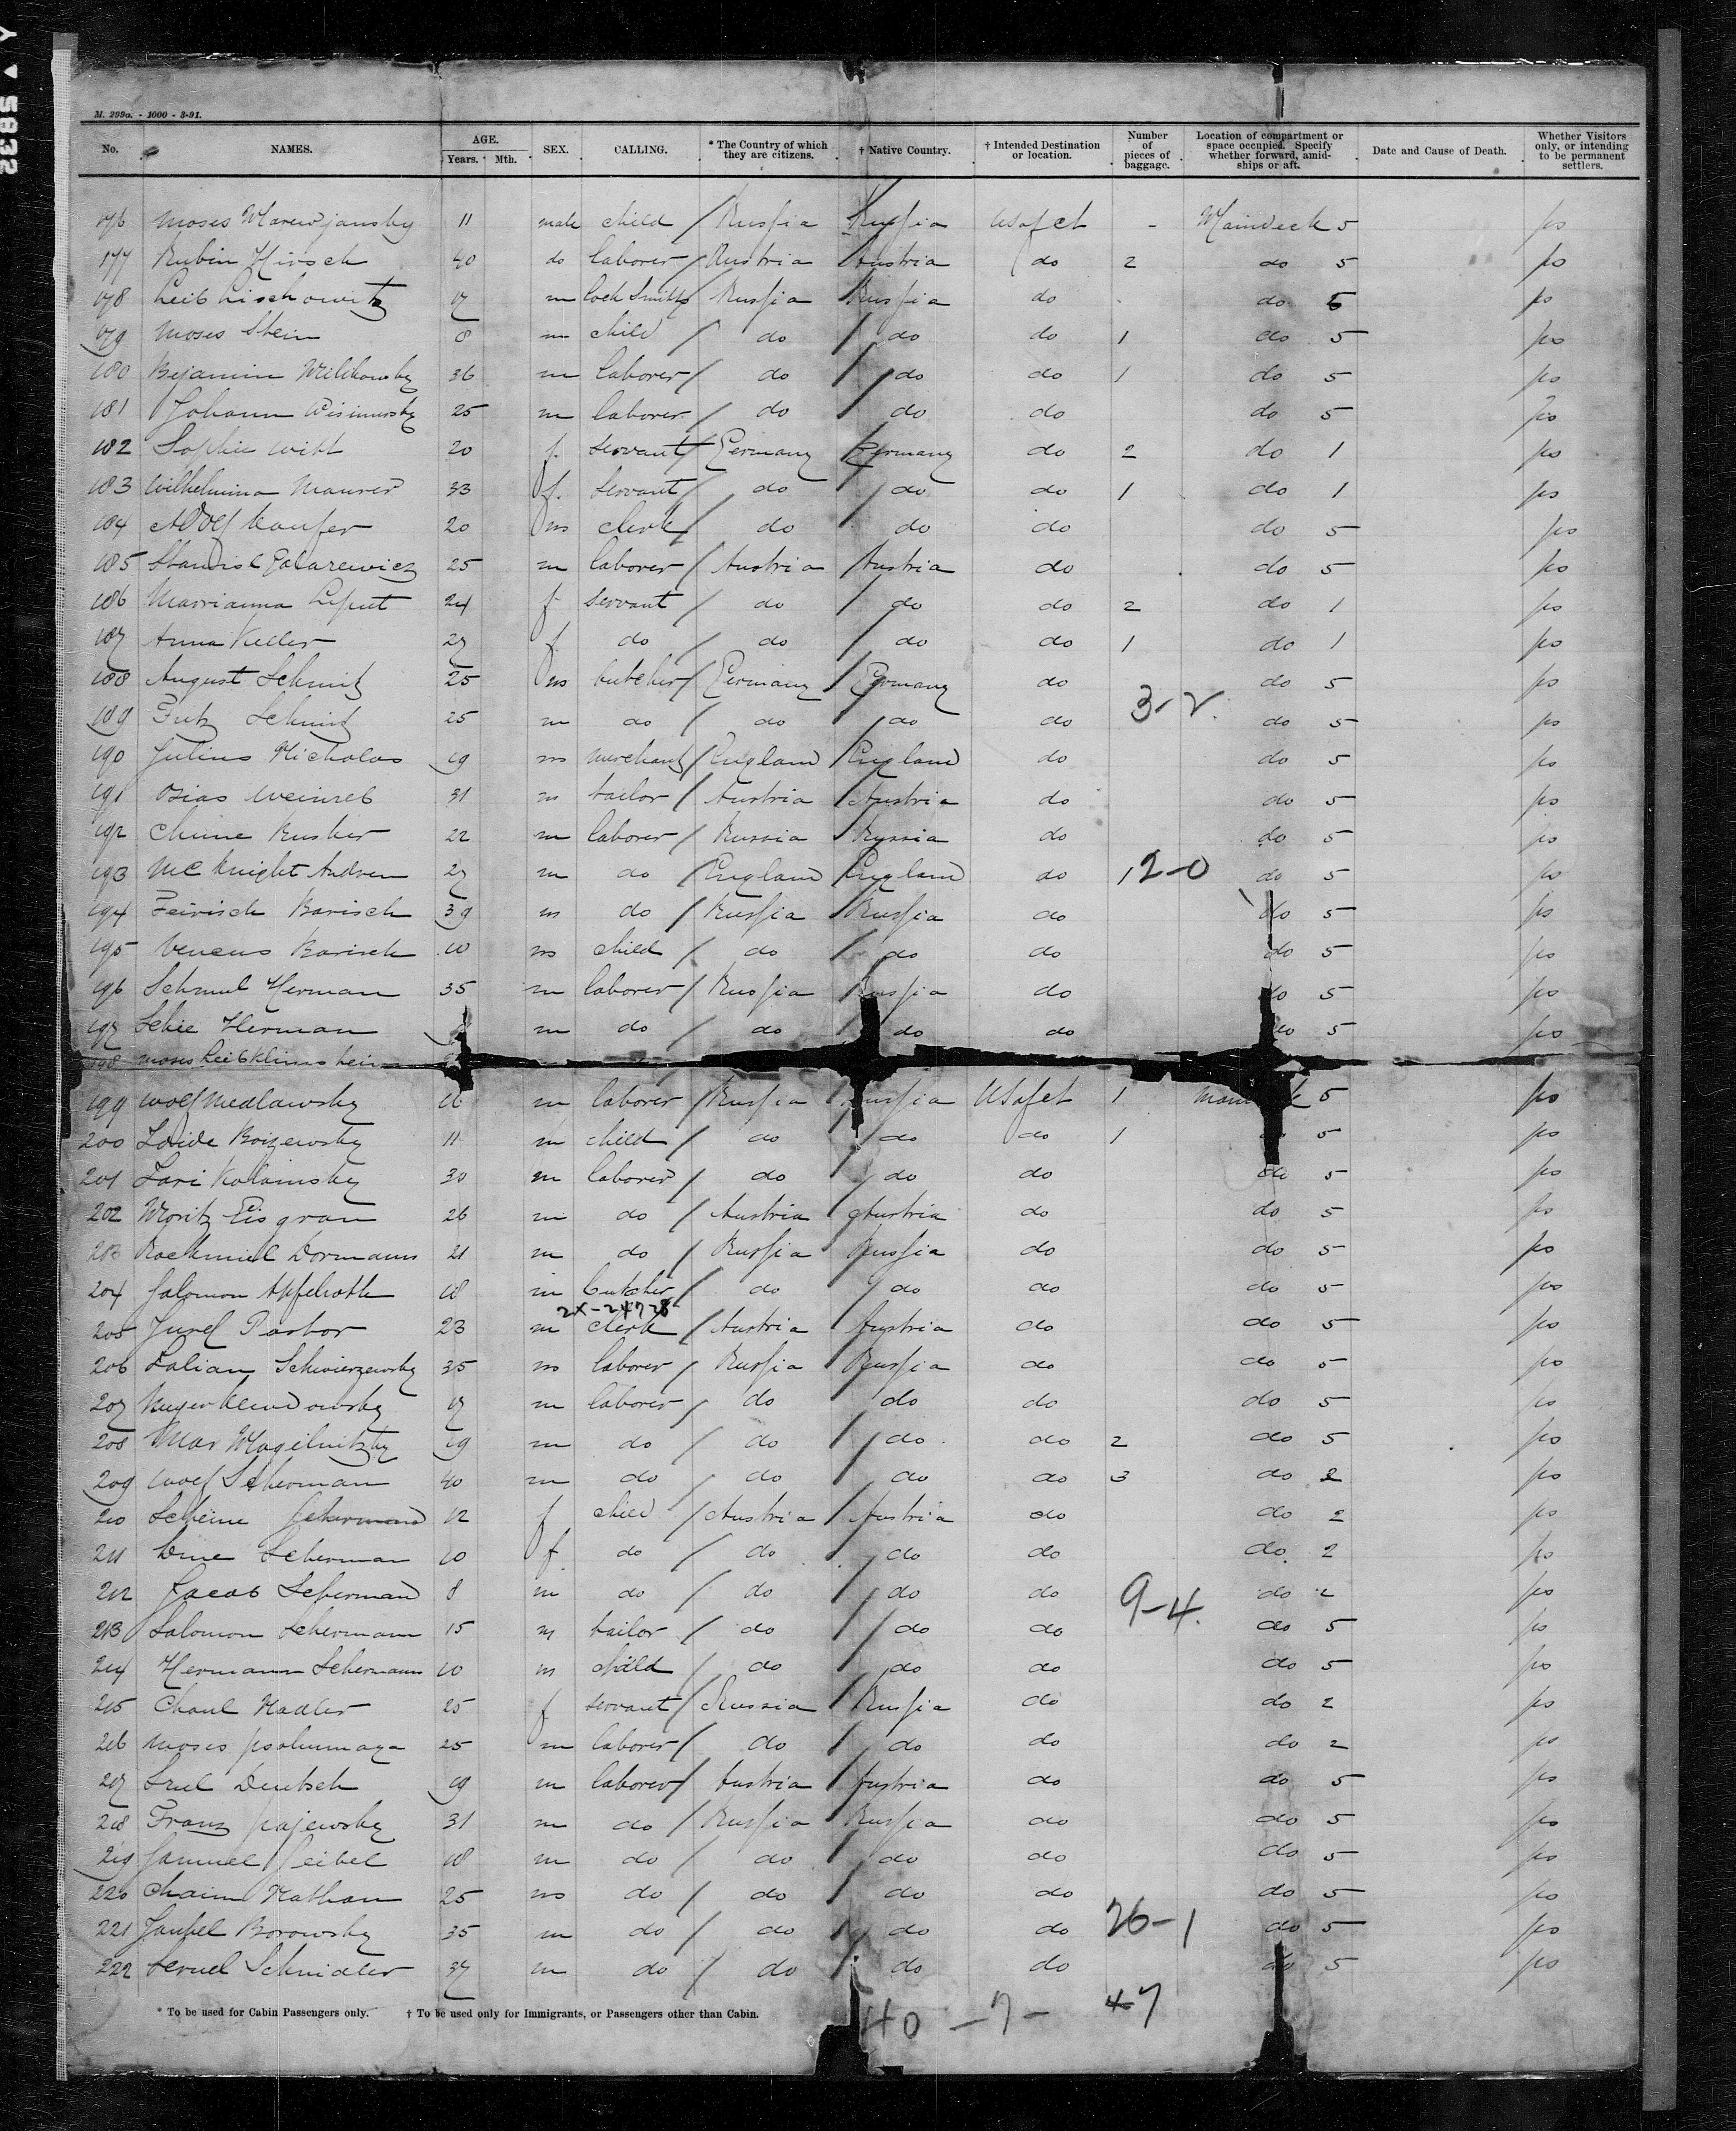 M. 299a. - 1000 - 3-91.
No. NAMES. AGE. Years. Mth. SEX. CALLING. * The Country of which they are citizens. † Native Country. † Intended Destination or location. Number of pieces of baggage. Location of compartment or space occupied. Specify whether forward, amidships or aft. Date and Cause of Death. Whether Visitors only, or intending to be permanent settlers.
176 Moses 11 male child / Russia Russia USofct - Maindeck 5 ps
177 Rubin Hirsch 40 do laborer / Austria Austria do 2 do 5 ps
178 Leib Lischowitz 17 m lock Smith / Russia Russia do do 5 ps
179 Moses Stein 8 m child / do / do do 1 do 5 ps
180 Bejamin Wilikowsky 36 m laborer / do / do do 1 do 5 ps
181 Johann 25 m laborer / do / do do do 5 ps
182 Sophie Witt 20 f. servant / Germany Germany do 2 do 1 ps
183 Wilhelmina Maurer 33 f. servant / do / do do 1 do 1 ps
184 Adolf Kaufer 20 m clerk / do do do do 5 ps
185 25 m laborer / Austria Austria do do 5 ps
186 Marrianna 24 f servant / do / do do 2 do 1 ps
187 Anna Keller 27 f. do / do / do do 1 do 1 ps
188 August Schmitz 25 m butcher / Germany / Germany do do 5 ps
3-2.
189 Fritz Schmitz 25 m do / do / do do do 5 ps
190 Julius Nicholas 19 m merchant / England / England do do 5 ps
191 Osias Weinreb 31 m tailor / Austria / Austria do do 5 ps
192 Chune Kusher 22 m laborer / Russia / Russia do do 5 ps
193 McKnight Andrew 27 m do / England / England do 12-0 do 5 ps
194 Feivisch Barisch 39 m do / Russia / Russia do do 5 ps
195 Barisch 10 m child / do / do do do 5 ps
196 Schmul Herman 35 m laborer / Russia / Russia do do 5 ps
197 Schie Herman m do / do do do do 5 ps
198 Moses Leib
199 Wolf Medlawsky 16 m laborer / Russia Russia USofct 1 5 ps
200 11 m child / do / do do 1 5 ps
201 30 m laborer / do / do do do 5 ps
202 Moritz Eisgrau 26 m do / Austria Austria do do 5 ps
203 Rachmiel Dormann 21 m do / Russia Russia do do 5 ps
204 Salomon Apfelroth 18 m butcher / do / do do do 5 ps
2X-24728
205 Pastor 23 m clerk / Austria / Austria do do 5 ps
206 35 m laborer / Russia / Russia do do 5 ps
207 17 m laborer / do / do do do 5 ps
208 Max Mogilnitzky 19 m do / do / do do 2 do 5 ps
209 Wolf Scherman 40 m do / do / do do 3 do 2 ps
210 Scheine Scherman 12 f child / Austria / Austria do do 2 ps
211 Dine Scherman 10 f. do / do / do do do 2 ps
212 Jacob Scherman 8 m do / do / do do 9-4. do 2 ps
213 Salomon Schermann 15 m tailor / do / do do do 5 ps
214 Hermann Schermann 10 m child / do / do do do 5 ps
215 Nadler 25 f servant / Russia / Russia do do 2 ps
216 Moses 25 m laborer / do / do do do 2 ps
217 Srul Deutsch 19 m laborer / Austria / Austria do do 5 ps
218 Franz 31 m do / Russia / Russia do do 5 ps
219 Samuel Feibel 18 m do / do / do do do 5 ps
220 Chaim Nathan 25 m do / do / do do do 5 ps
221 Jankel Borowsky 35 m do / do / do do 26-1 do 5 ps
222 37 m do / do / do do do 5 ps
* To be used for Cabin Passengers only. † To be used only for Immigrants, or Passengers other than Cabin.
40 - 7 - 47